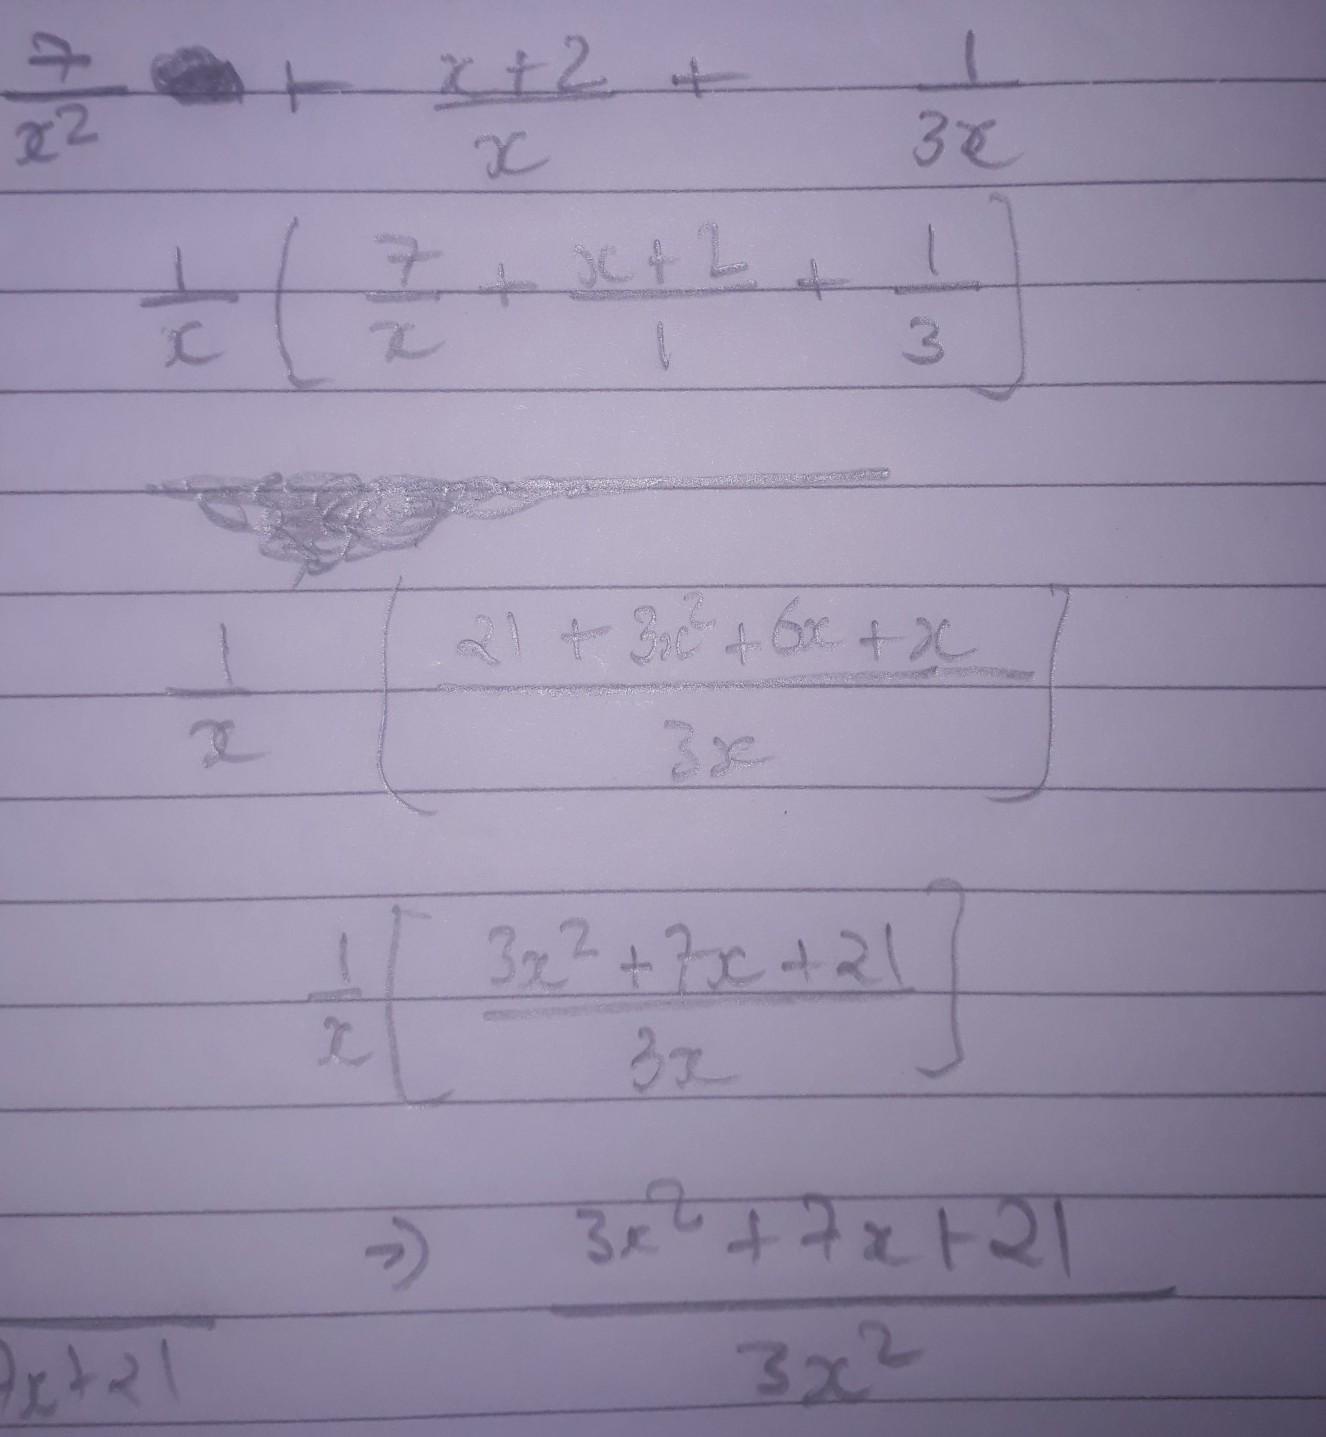 7/x² + (x+2)/x + 1/3x
1/x [ 7/x + (x+2)/1 + 1/3 ]
1/x [ (21 + 3x² + 6x + x)/3x ]
1/x [ (3x² + 7x + 21)/3x ]
⇒ (3x² + 7x + 21)/3x²
7x+21